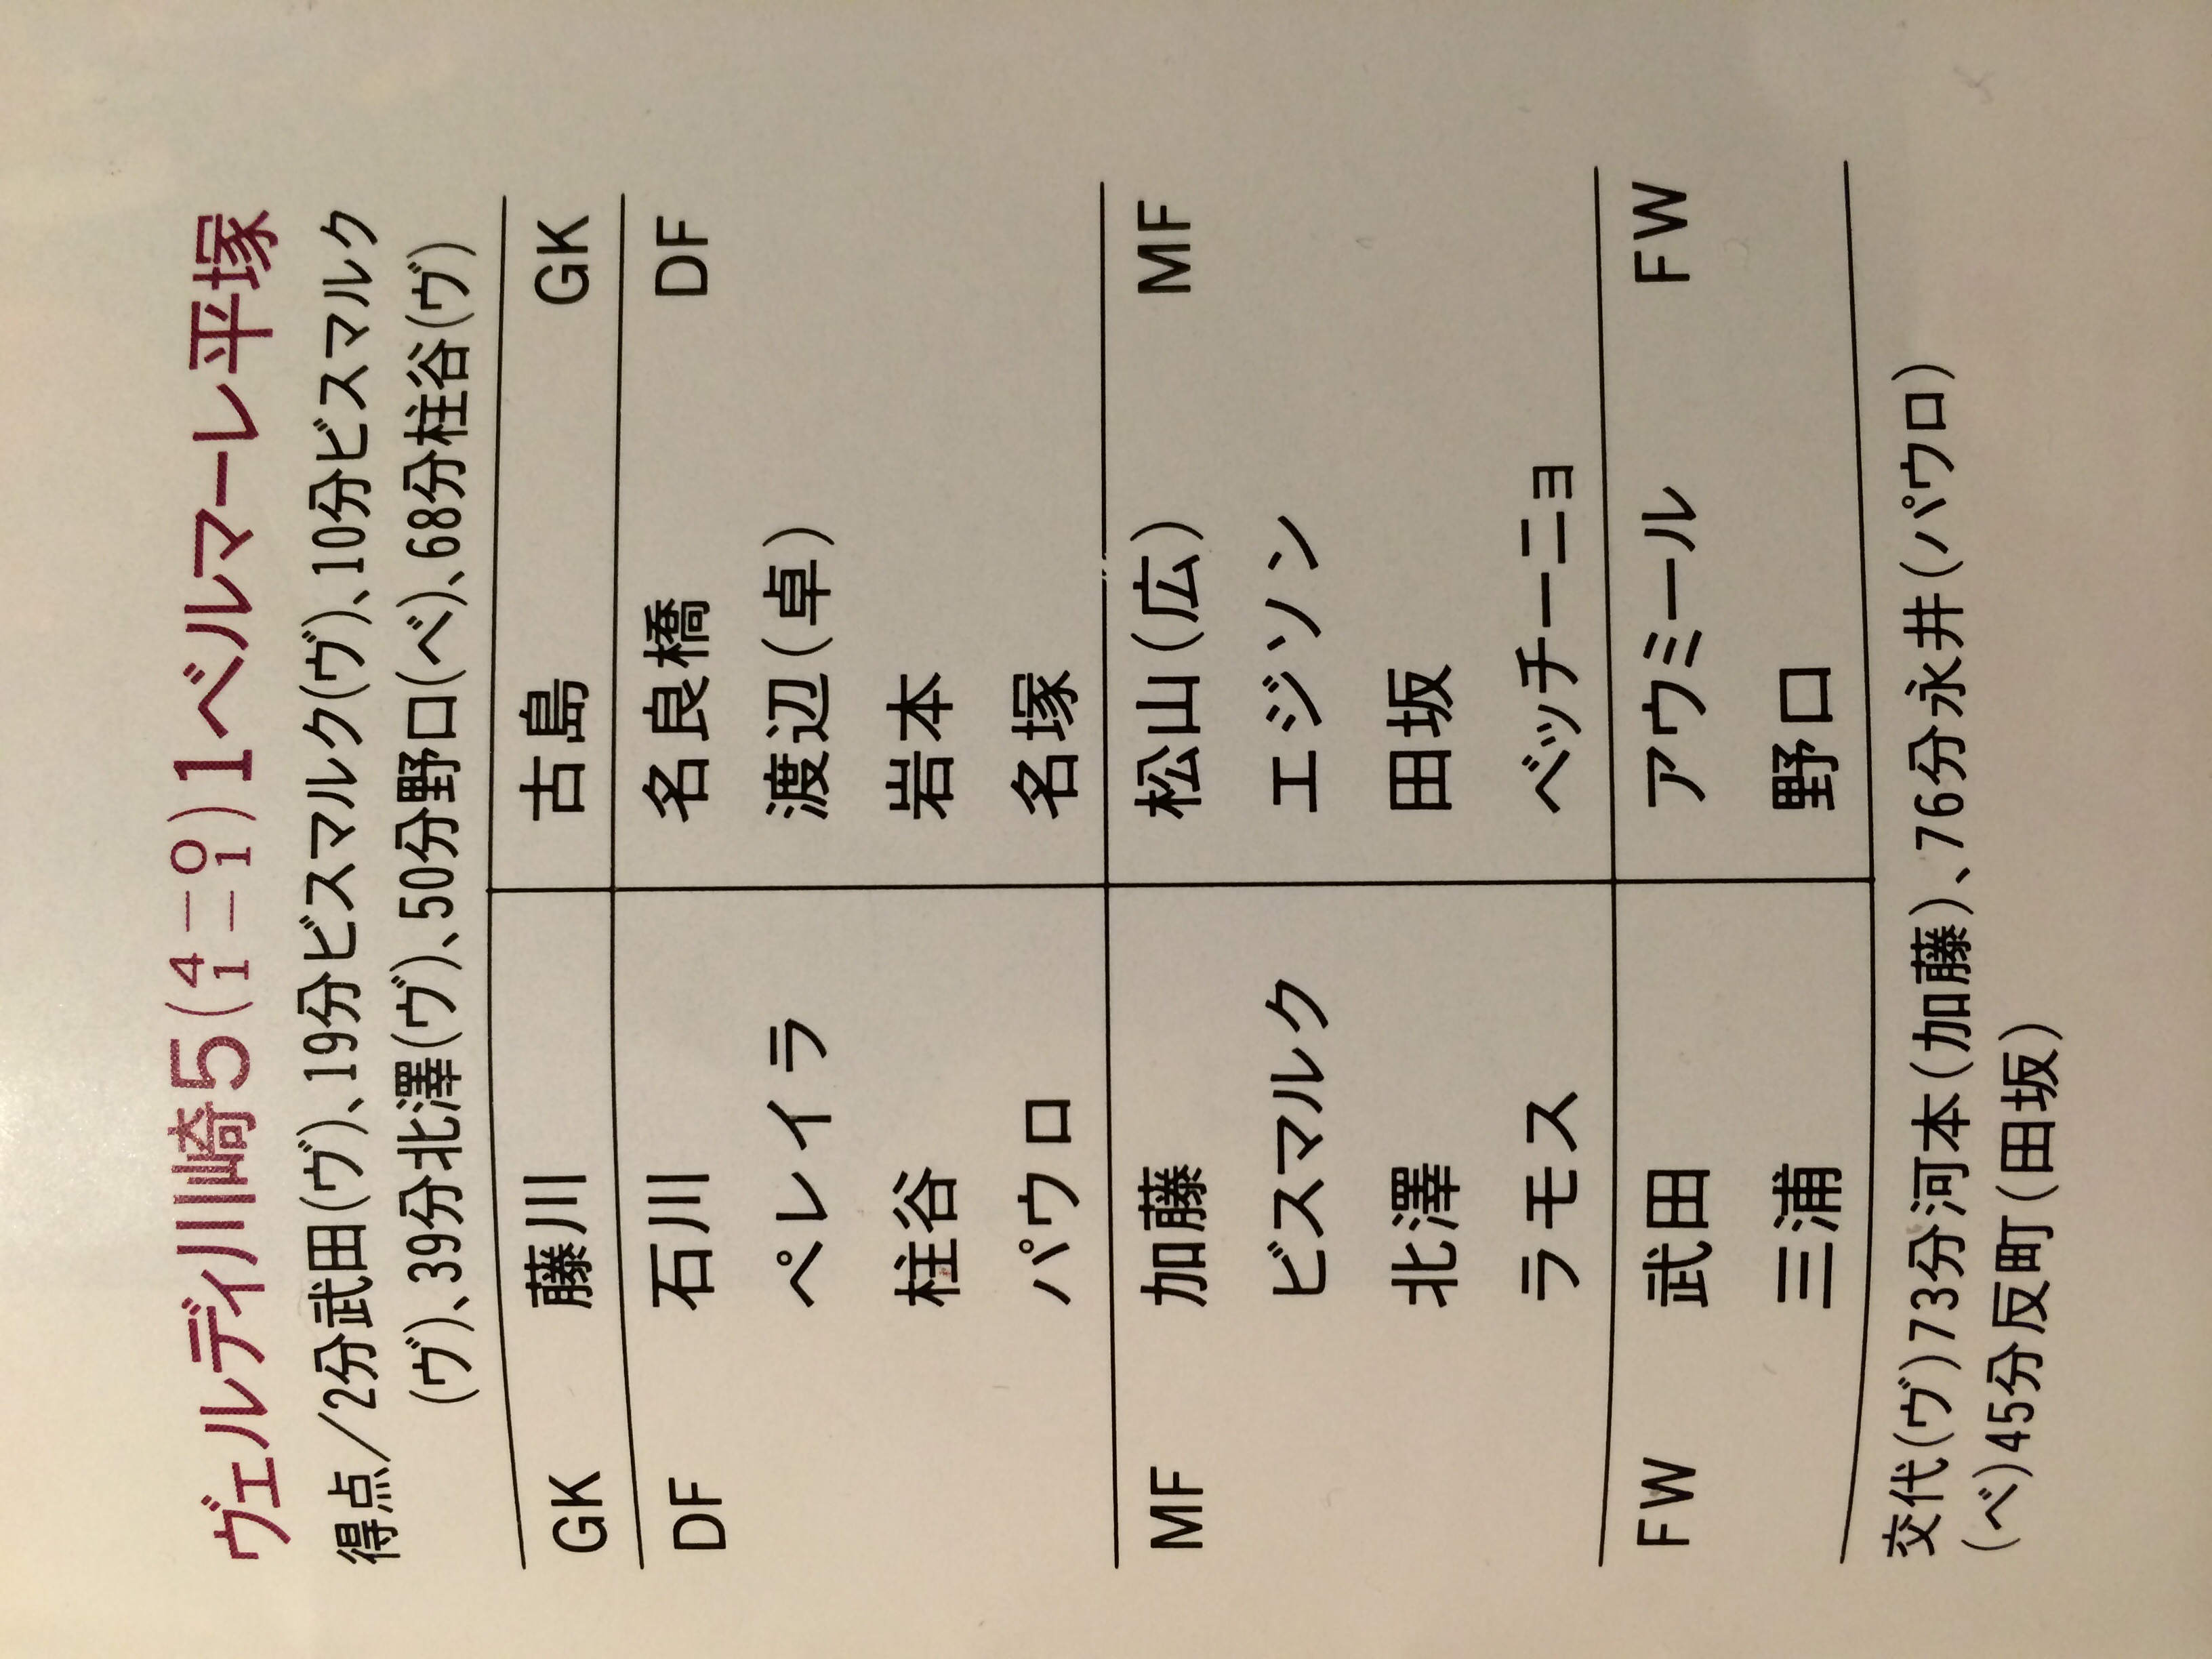 ヴェルディ川崎5(4-0 1-1)1ベルマーレ平塚
得点/2分武田(ヴ)、19分ビスマルク(ヴ)、10分ビスマルク
(ヴ)、39分北澤(ヴ)、50分野口(ベ)、68分柱谷(ヴ)
GK 藤川 古島 GK
DF 石川 名良橋 DF
ペレイラ 渡辺(卓)
柱谷 岩本
パウロ 名塚
MF 加藤 松山(広) MF
ビスマルク エジソン
北澤 田坂
ラモス ベッチーニョ
FW 武田 アウミール FW
三浦 野口
交代(ヴ)73分河本(加藤)、76分永井(パウロ)
(ベ)45分反町(田坂)